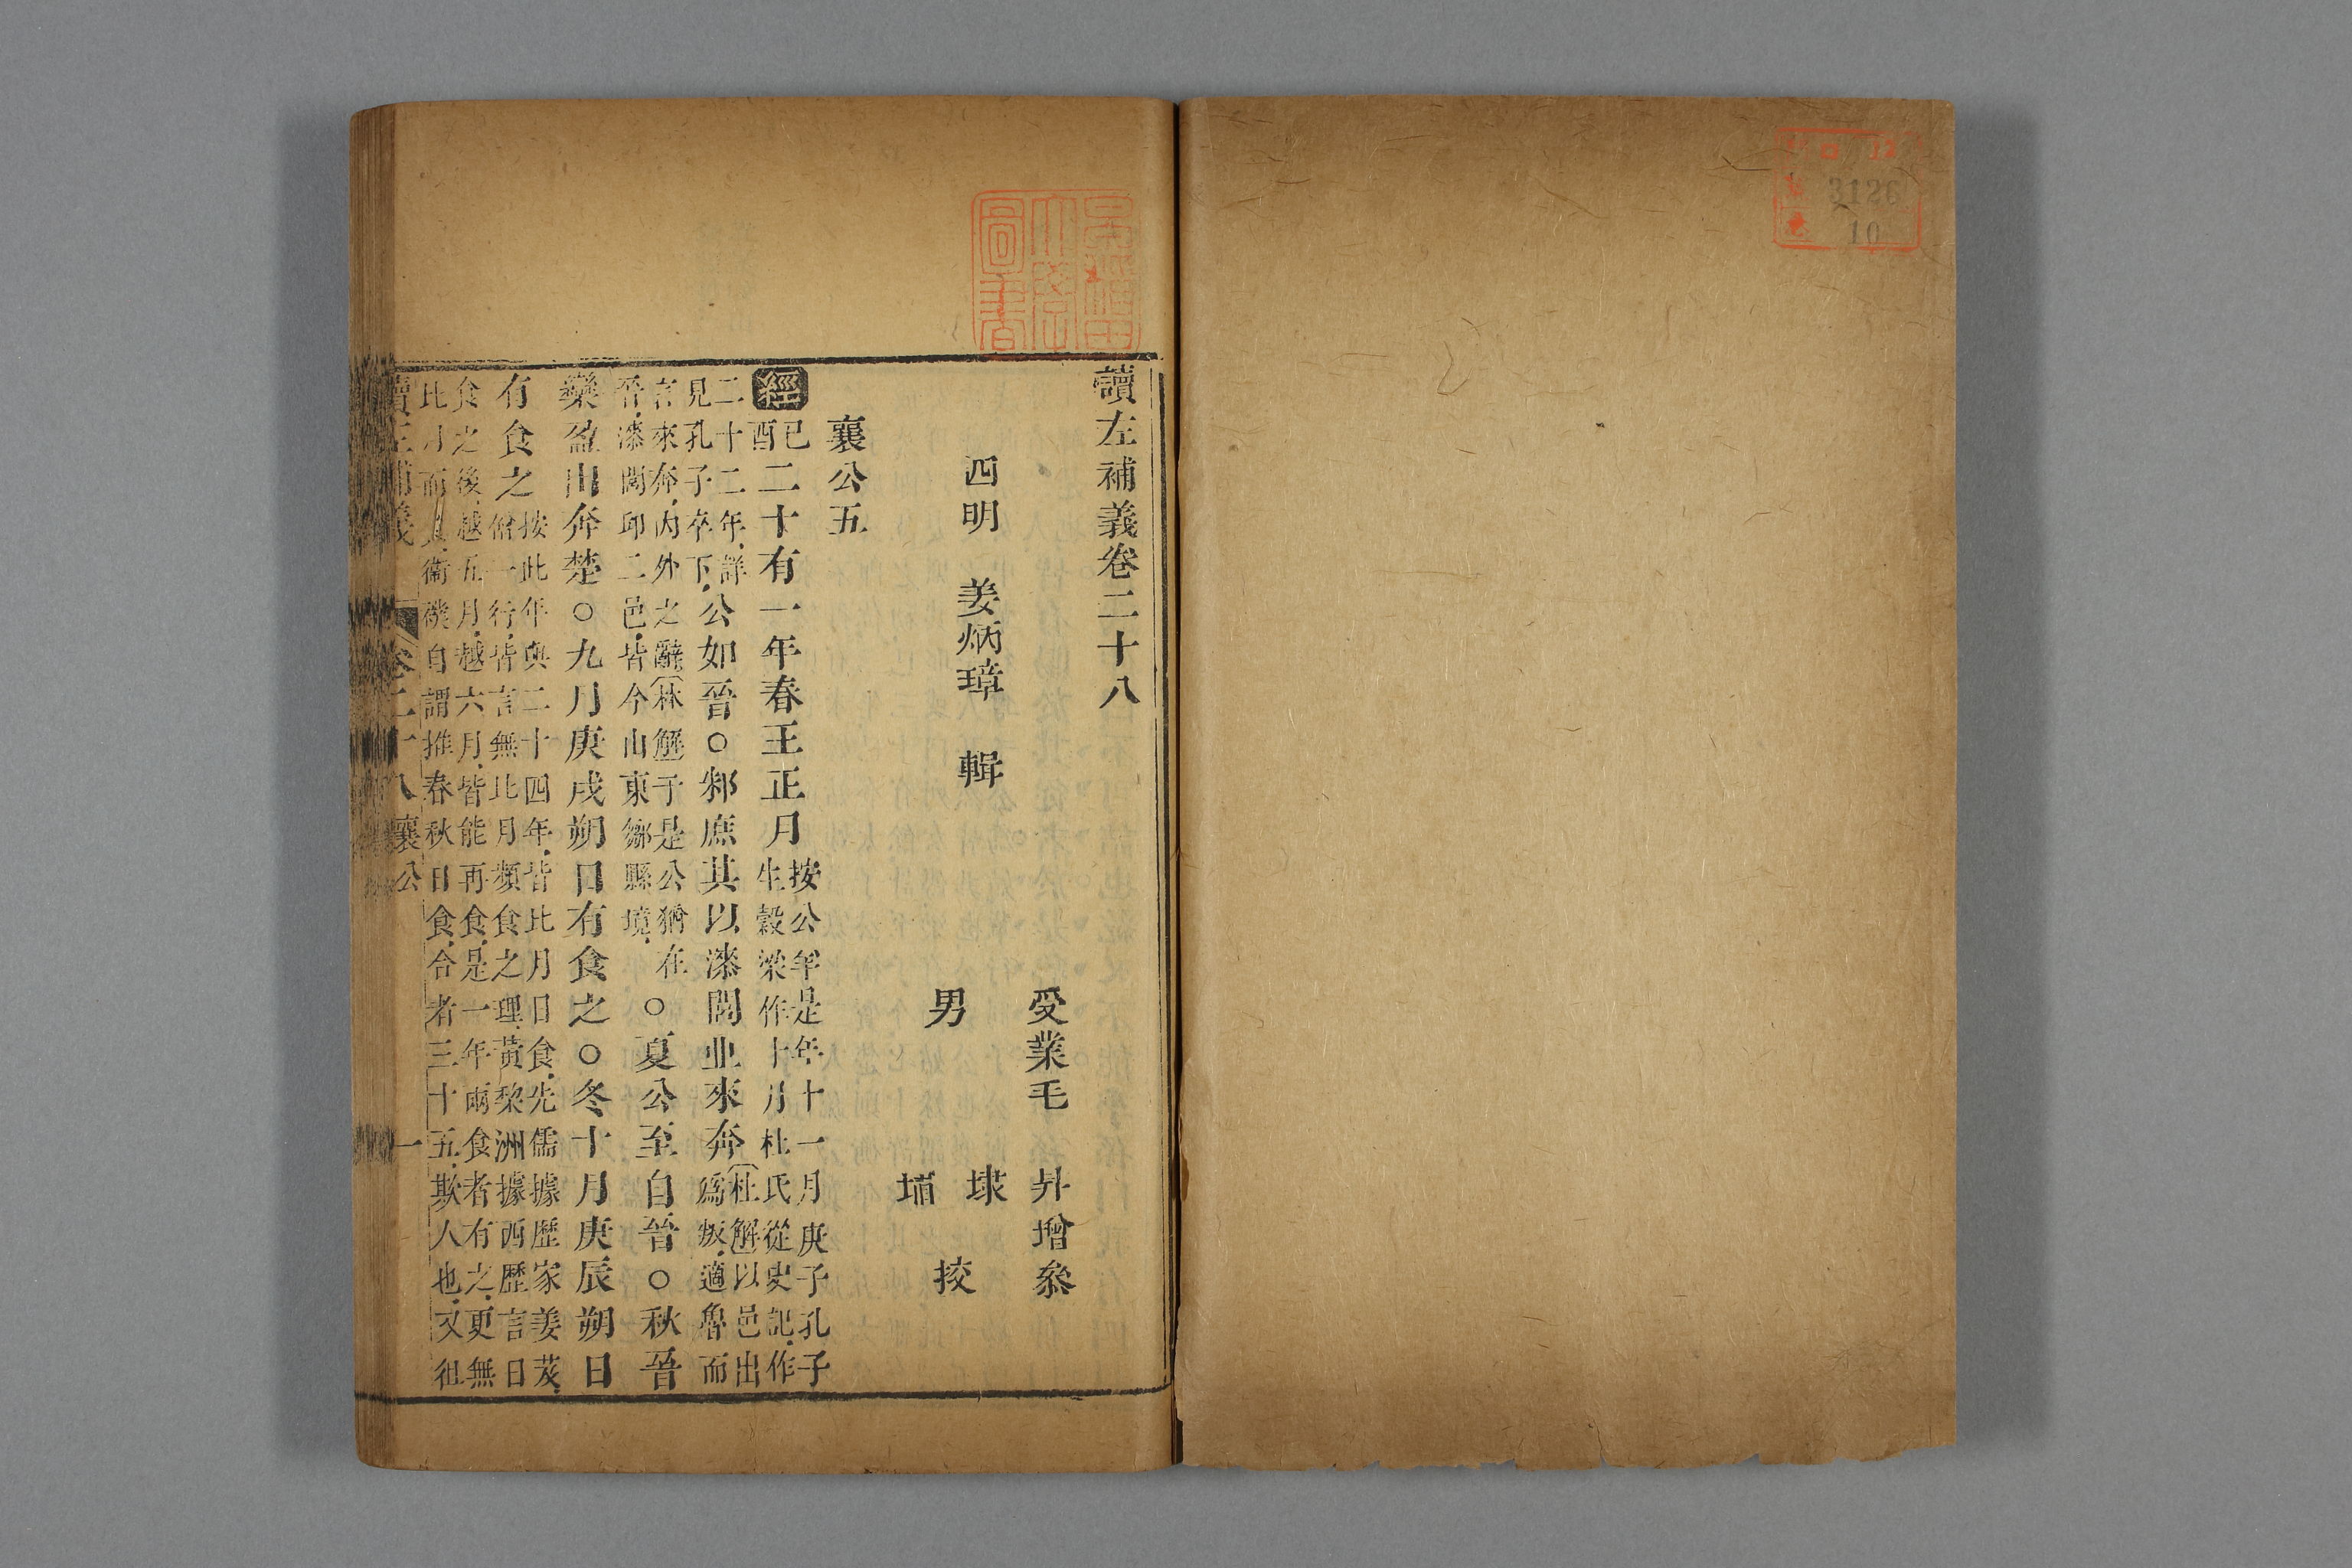 3126
10
讀左補義卷二十八
受業毛昇增叅
四明 姜炳璋 輯
男 埰 埔 挍
襄公五
經 己酉二十有一年春王正月按公羊是年十一月庚子孔子生穀梁作十月杜氏從史記作
二十二年詳見孔子卒下公如晉○邾庶其以漆閭丘來奔杜解以邑出爲叛適魯而
言來奔內外之辭林解于是公猶在晉漆閭邱二邑皆今山東鄒縣境○夏公至自晉○秋晉
欒盈出奔楚○九月庚戌朔日有食之○冬十月庚辰朔日
有食之按此年與二十四年皆比月日食先儒據歷家姜岌僧一行皆言無比月頻食之理黃棃洲據西歷言日
食之後越五月越六月皆能再食是一年兩食者有之更無
比月而食衛自謂推春秋日食合者三十五欺人也又徂
讀左補義 卷二十八 襄公 一